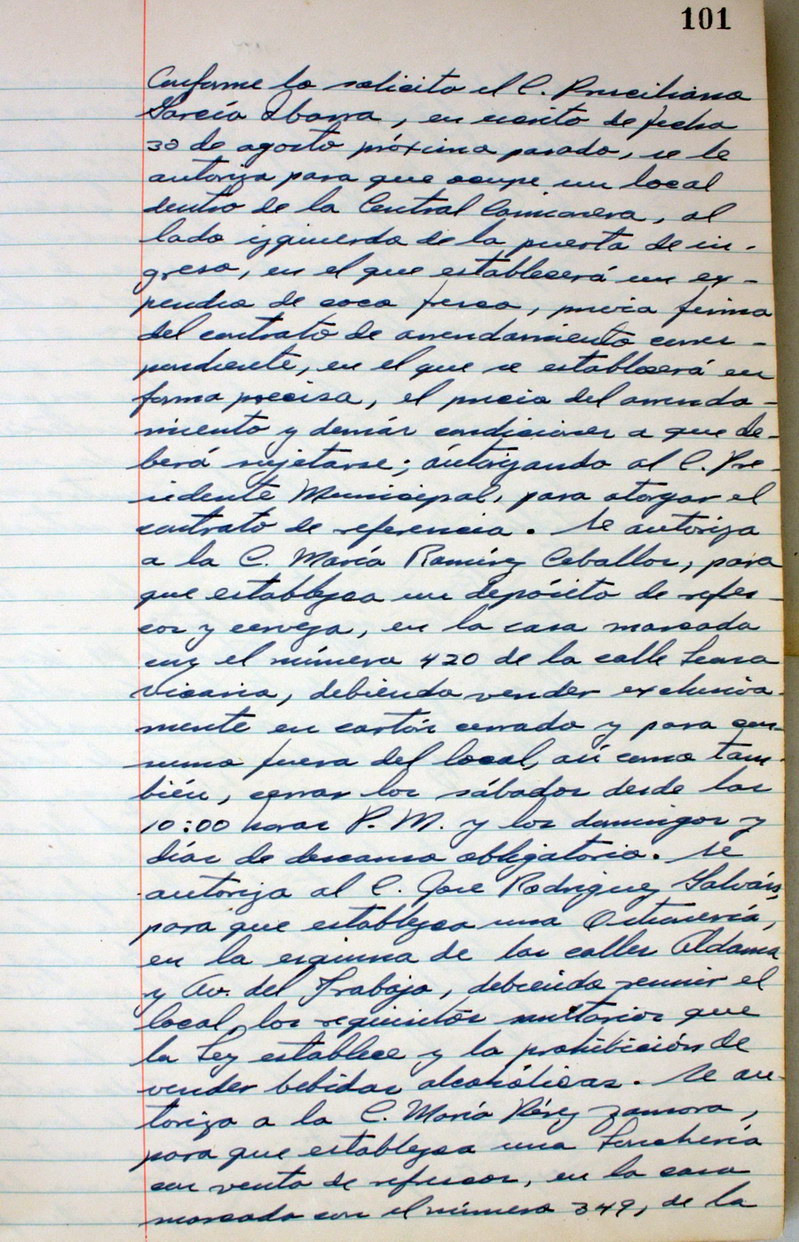 101
Conforme lo solicita el C. Prisciliano
García Ibarra, en escrito de fecha
30 de agosto próximo pasado, se le
autoriza para que ocupe un local
dentro de la Central Camionera, al
lado izquierdo de la puerta de in-
greso, en el que establecerá un ex-
pendio de coco fresco, previa firma
del contrato de arrendamiento corres-
pondiente, en el que se establecerá en
forma precisa, el precio del arrenda-
miento y demás condiciones a que de-
berá sujetarse; autorizando al C. Pre-
sidente Municipal, para otorgar el
contrato de referencia. Se autoriza
a la C. María Ramírez Ceballos, para
que establezca un depósito de refres-
cos y cerveza, en la casa marcada
con el número 420 de la calle Leona
Vicario, debiendo vender exclusiva-
mente en cartón cerrado y para con-
sumo fuera del local, así como tam-
bién, cerrar los sábados desde las
10:00 horas P. M. y los domingos y
días de descanso obligatorio. Se
autoriza al C. José Rodríguez Galván,
para que establezca una Ostionería,
en la esquina de las calles Aldama
y Av. del Trabajo, debiendo reunir el
local, los requisitos sanitarios que
la Ley establece y la prohibición de
vender bebidas alcohólicas. Se au-
toriza a la C. María Pérez Zamora,
para que establezca una Lonchería
con venta de refrescos, en la casa
marcada con el número 349, de la